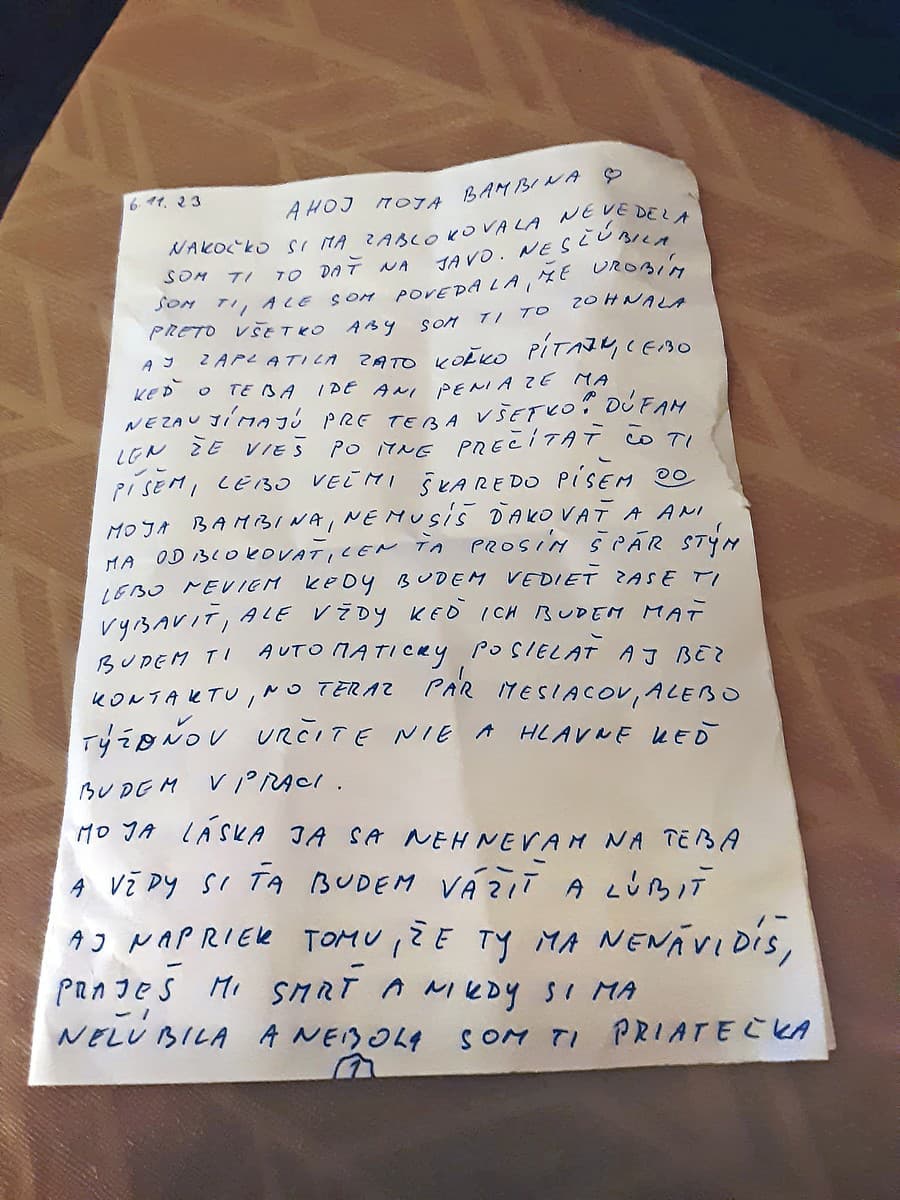 6.11.23 AHOJ MOJA BAMBINA ♡
NAKOĽKO SI MA ZABLOKOVALA NEVEDELA
SOM TI TO DAŤ NA JAVO. NESĽÚBILA
SOM TI, ALE SOM POVEDALA, ŽE UROBÍM
PRETO VŠETKO ABY SOM TI TO ZOHNALA
AJ ZAPLATILA ZATO KOĽKO PÍTAJÚ, LEBO
KEĎ O TEBA IDE ANI PENIAZE MA
NEZAUJÍMAJÚ PRE TEBA VŠETKO! DÚFAM
LEN ŽE VIEŠ PO MNE PREČÍTAŤ ČO TI
PÍŠEM, LEBO VEĽMI ŠKAREDO PÍŠEM
MOJA BAMBINA, NEMUSÍŠ ĎAKOVAŤ A ANI
MA ODBLOKOVAŤ, LEN ŤA PROSÍM ŠPÁR STÝM
LEBO NEVIEM KEDY BUDEM VEDIEŤ ZASE TI
VYBAVIŤ, ALE VŽDY KEĎ ICH BUDEM MAŤ
BUDEM TI AUTOMATICKY POSIELAŤ AJ BEZ
KONTAKTU, NO TERAZ PÁR MESIACOV, ALEBO
TÝŽDŇOV URČITE NIE A HLAVNE KEĎ
BUDEM V PRACI.
MOJA LÁSKA JA SA NEHNEVAM NA TEBA
A VŽDY SI ŤA BUDEM VÁŽIŤ A LÚBIŤ
AJ NAPRIEK TOMU, ŽE TY MA NENÁVIDÍŠ,
PRAJEŠ MI SMRŤ A NIKDY SI MA
NEĽÚBILA A NEBOLA SOM TI PRIATEĽKA
1